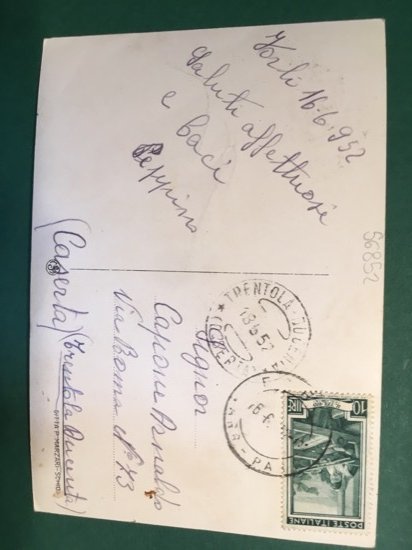 Forlì 16.6.952
Saluti affettuosi
e baci
Peppino
56852
TRENTOLA DUCENTA
(CASERTA)
18.6.52
Signor
Capone Arnaldo
Via Roma N° 73
(Trentola Ducenta)
(Caserta)
LIRE 10
POSTE ITALIANE